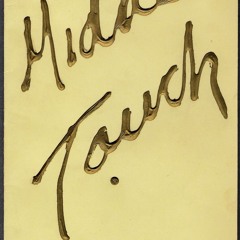 Midas
Touch